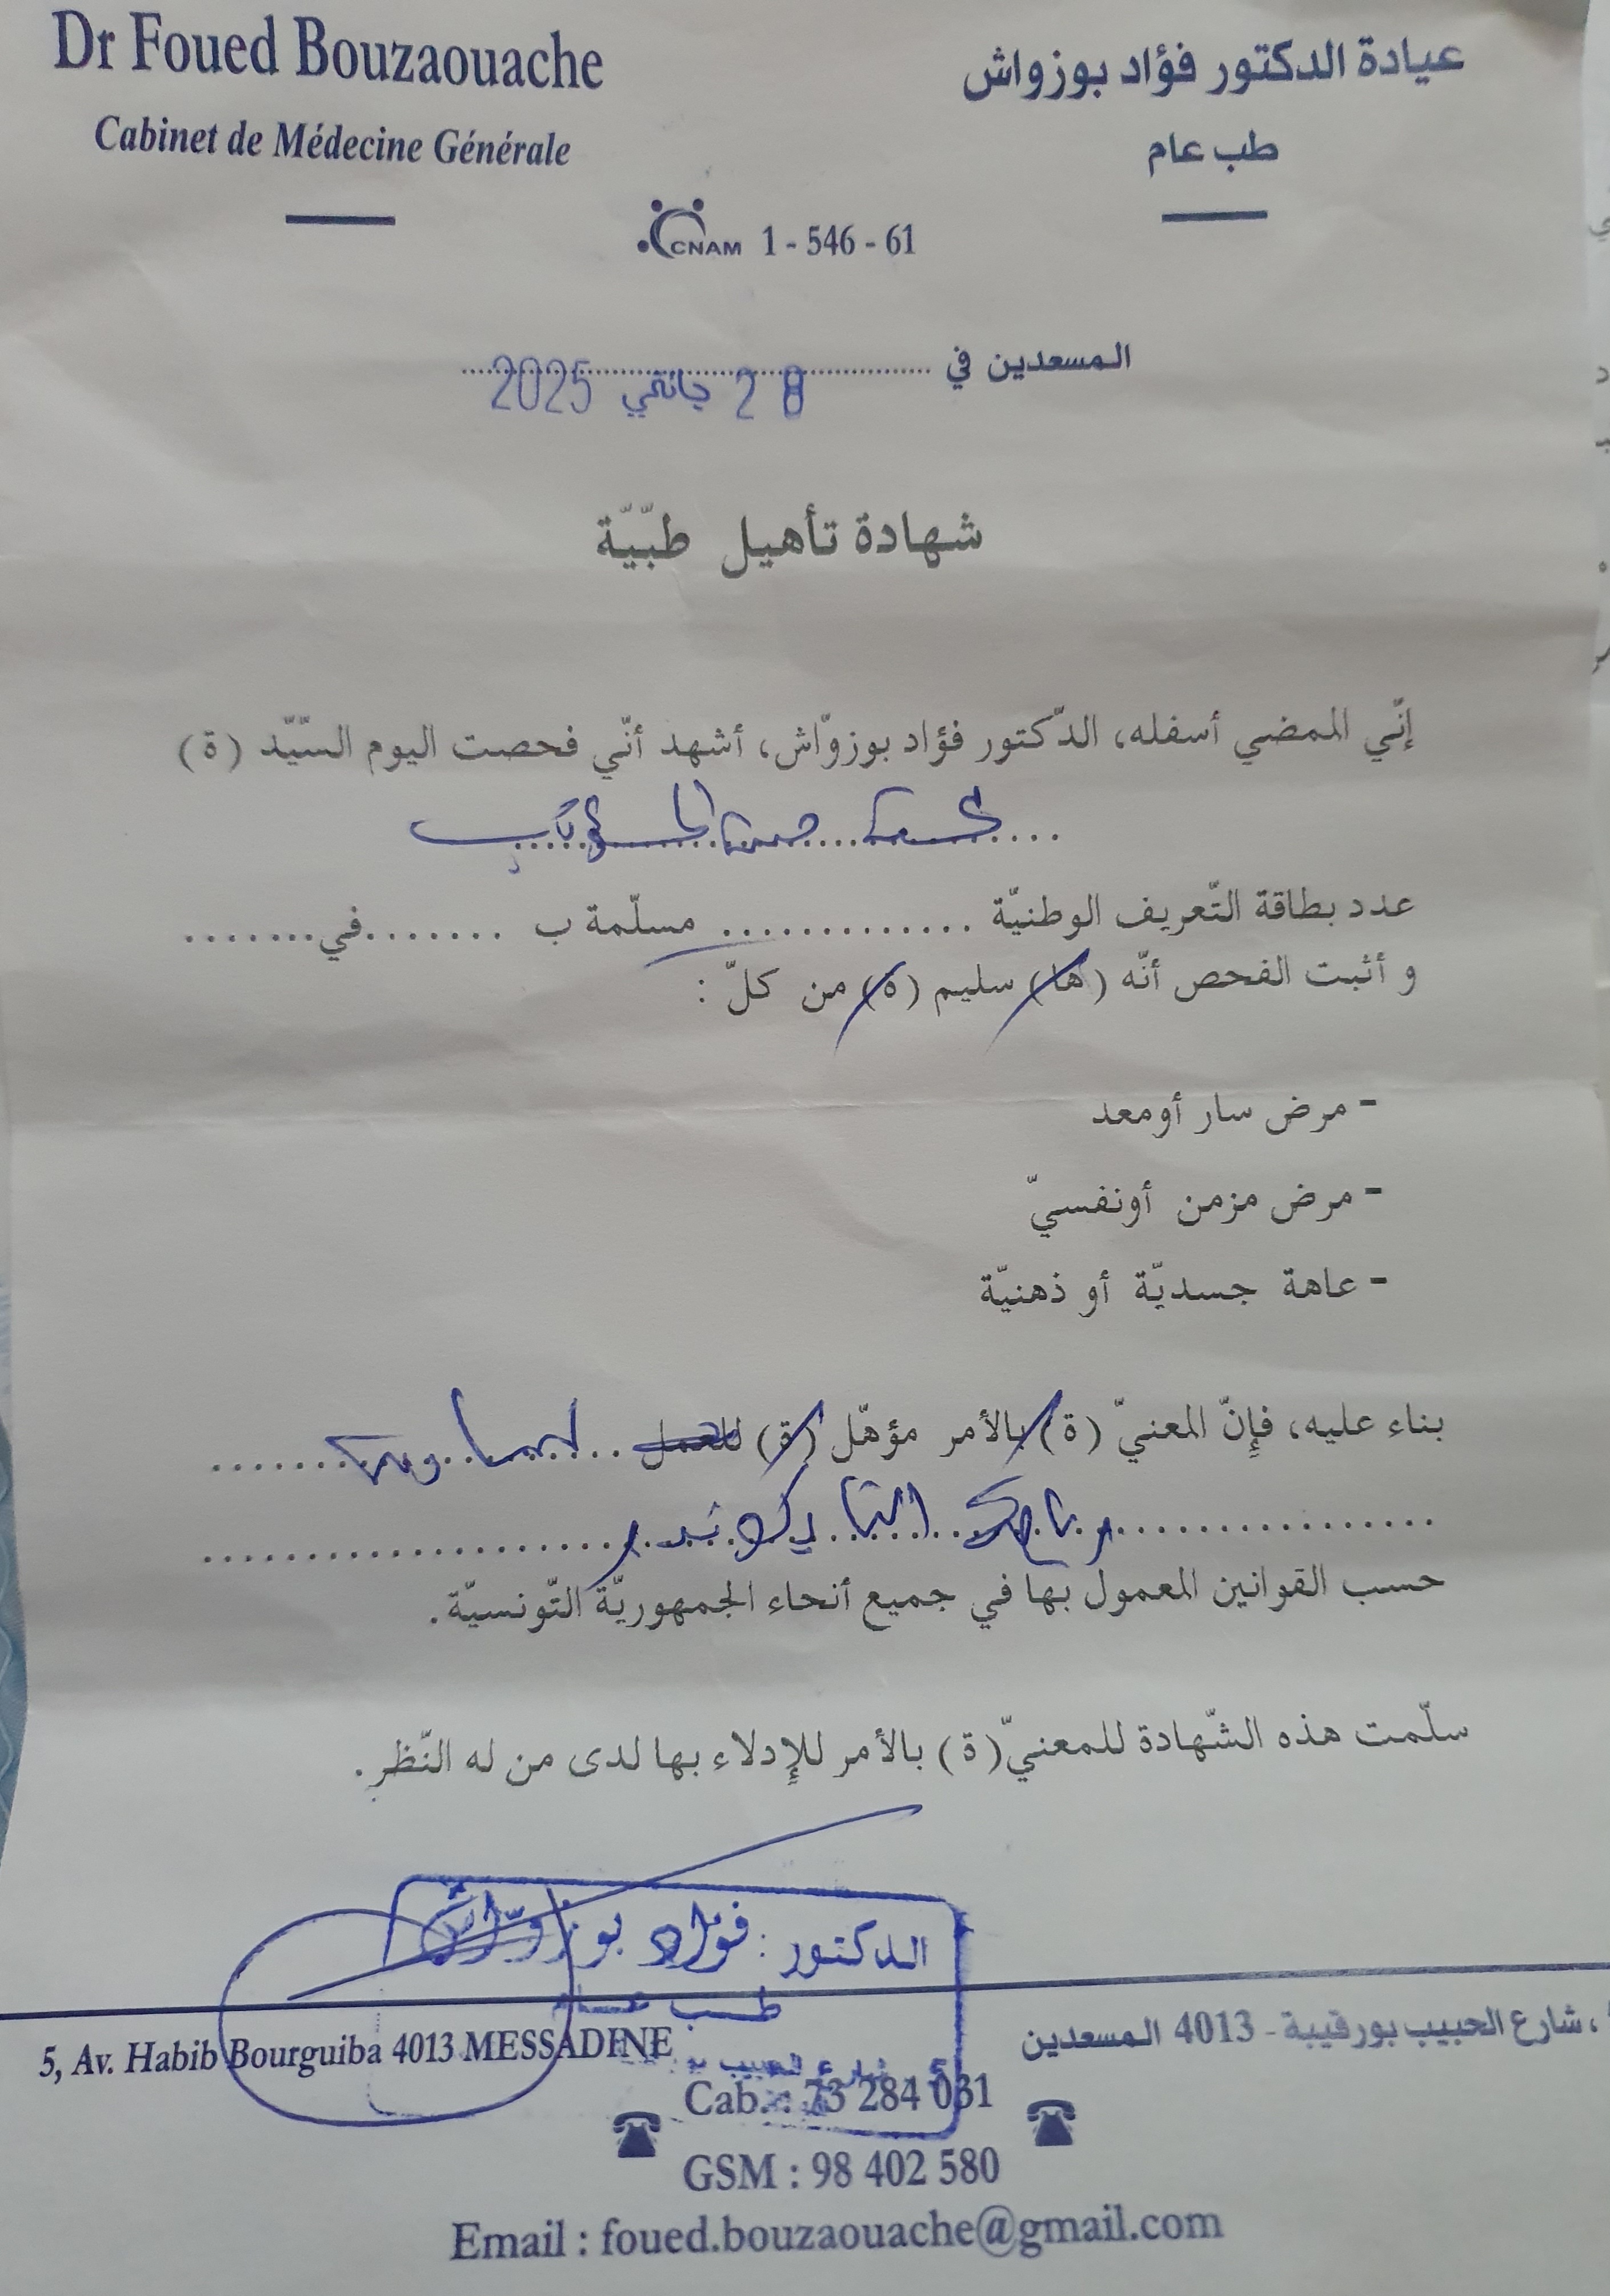 Dr Foued Bouzaouache
عيادة الدكتور فؤاد بوزواش
Cabinet de Médecine Générale
طب عام
CNAM 1 - 546 - 61
المسعدين في
28 جانفي 2025
شهادة تأهيل طبّيّة
إنّي الممضي أسفله، الدّكتور فؤاد بوزوّاش، أشهد أنّي فحصت اليوم السّيّد (ة)
عدد بطاقة التّعريف الوطنيّة ............. مسلّمة ب .......في.......
و أثبت الفحص أنّه (ها) سليم (ة) من كلّ :
- مرض سار أومعد
- مرض مزمن أونفسيّ
- عاهة جسديّة أو ذهنيّة
بناء عليه، فإنّ المعنيّ (ة) بالأمر مؤهّل (ة) للعمل .. لممارسة
رياضة التايكوندو
حسب القوانين المعمول بها في جميع أنحاء الجمهوريّة التّونسيّة.
سلّمت هذه الشّهادة للمعنيّ (ة) بالأمر للإدلاء بها لدى من له النّظر.
الدكتور : فؤاد بوزوّاش
طب عام
شارع الحبيب
5, Av. Habib Bourguiba 4013 MESSADINE
، شارع الحبيب بورقيبة - 4013 المسعدين
Cab. : 73 284 031
GSM : 98 402 580
Email : foued.bouzaouache@gmail.com